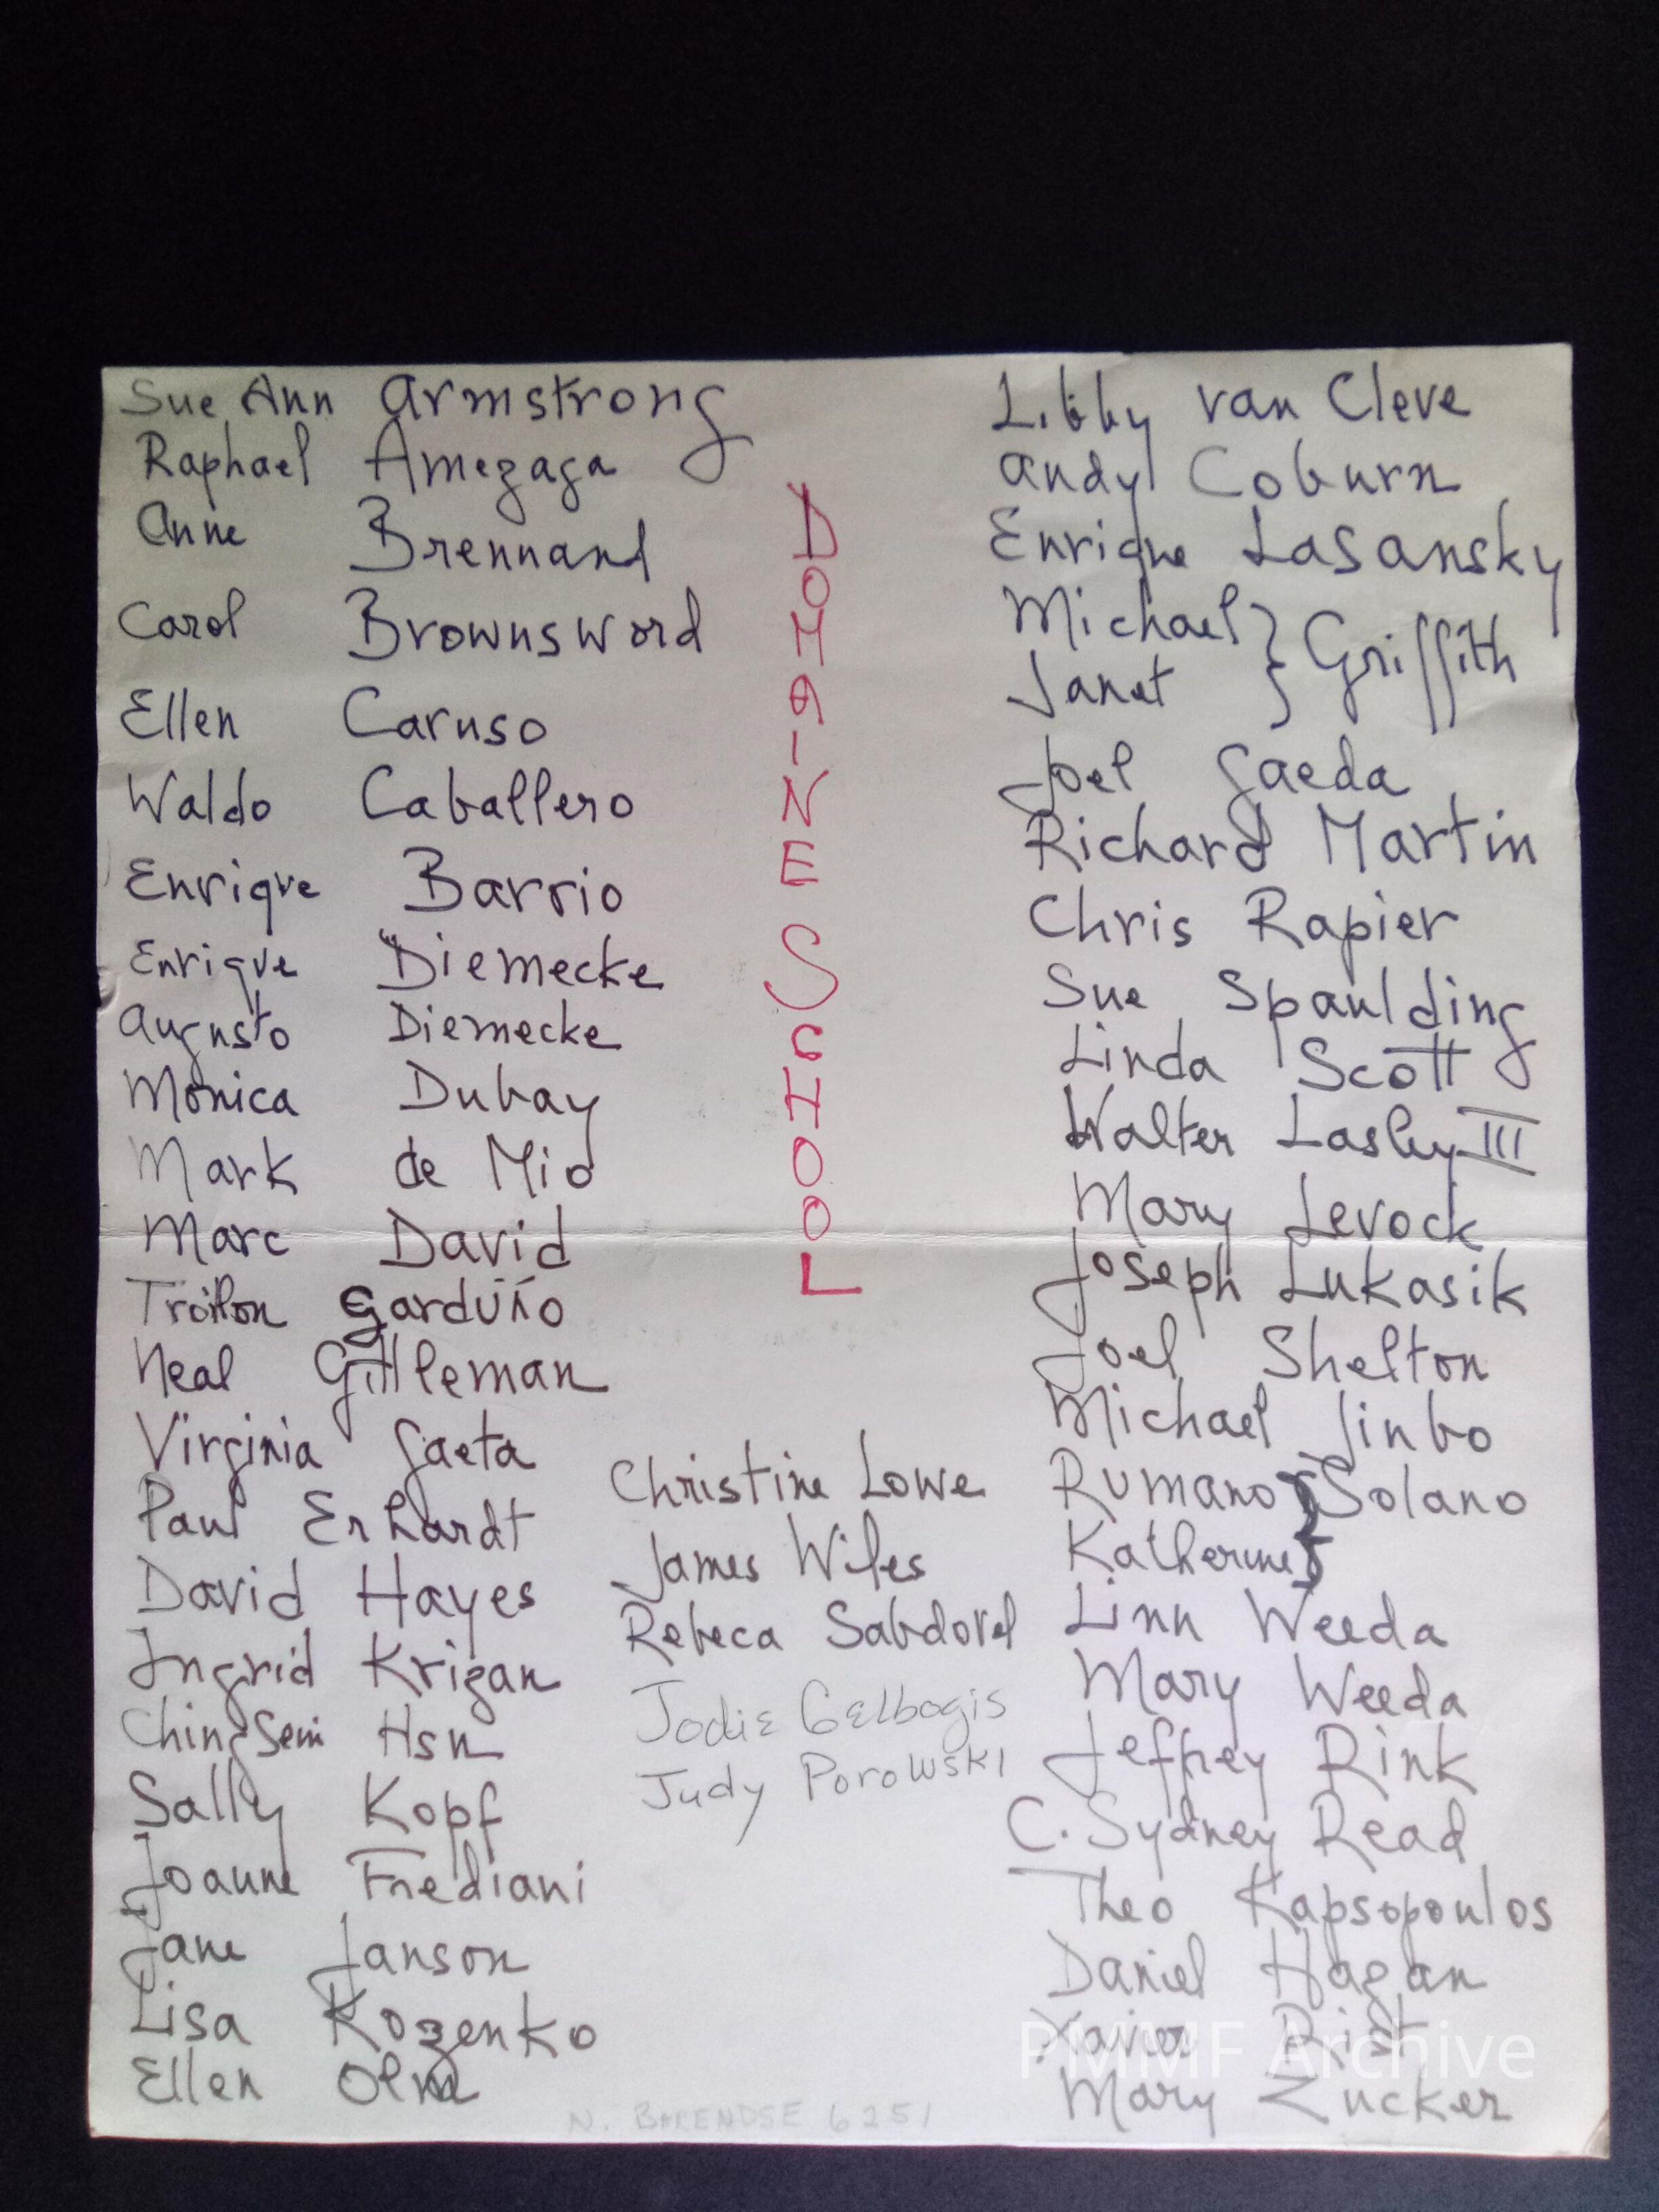 Sue Ann Armstrong
Raphael Amezaga
Anne Brennand
Carol Brownsword
Ellen Caruso
Waldo Caballero
Enrique Barrio
Enrique Diemecke
Augusto Diemecke
Monica Dubay
Mark de Mio
Marc David
Garduño
Neal Gittleman
Virginia Gaeta
Paul Erhardt
David Hayes
Ingrid Krizan
Hsu
Sally Kopf
Joanne Frediani
Jane Janson
Lisa Kozenko
Ellen
DOMAINE SCHOOL
Christine Lowe
James Wiles
Rebeca
Jodie Gelbogis
Judy Porowski
Libby van Cleve
Andy Coburn
Enrique Lasansky
Michael } Griffith
Janet
Joel Gaeda
Richard Martin
Chris Rapier
Sue Spaulding
Linda Scott
Walter Lasley III
Mary Levock
Joseph Lukasik
Joel Shelton
Michael Jinbo
Rumano } Solano
Katherine
Linn Weeda
Mary Weeda
Jeffrey Rink
C. Sydney Read
Theo Kapsopoulos
Daniel Hagan
Xavier Rist
Mary Zucker
N. BARENDSE 6251
PMMF Archive